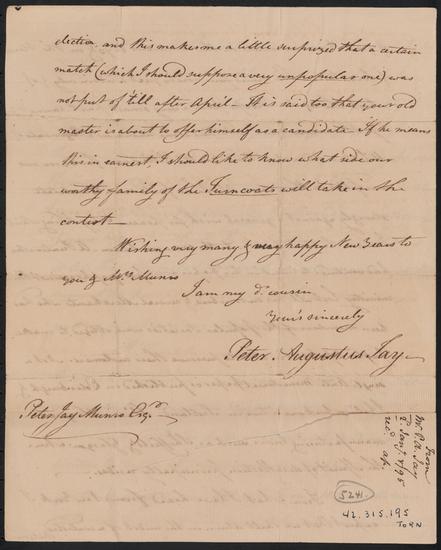 election and this makes me a little surprized that a certain
match (which I should suppose a very unpopular one) was
not put of 'till after April – It is said too that your old
master is about to offer himself as a candidate If he means
this in earnest, I should like to know what side our
worthy family of the Turncoats will take in the
contest –
Wishing very many & very happy New Years to
you & Mrs Munro
I am my dr cousin
Your's sincerely
Peter Augustus Jay
Peter Jay Munro Esqr.
From
Mr. P. A. Jay
2d Jany 1795
recd
5241.
42.315.195
TORN